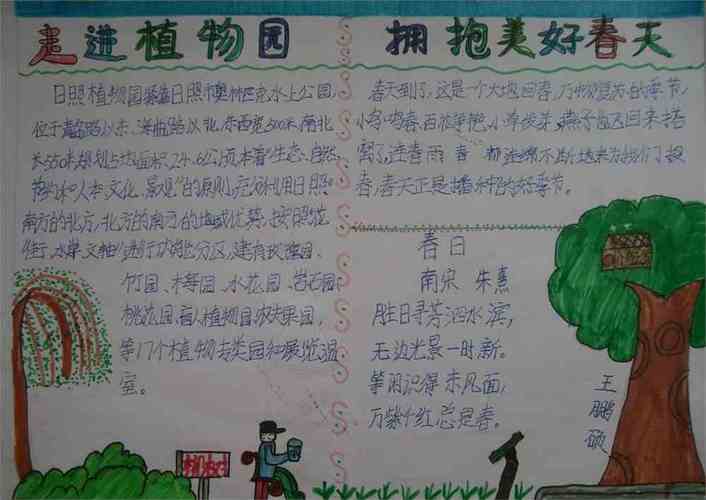 走进植物园
拥抱美好春天
日照植物园紧靠日照市奥林匹克水上公园,
位于青岛路以东、海临路以北,东西宽500米,南北
长560米,规划占地面积24.6公顷,本着"生态、自然、
节约、人本、文化、景观"的原则,充分利用日照
南方的北方,北方的南方的地域优势,按照"花
街、水岸、文轴"进行功能分区,建有玫瑰园、
竹园、梅园、水花园、岩石园
桃花园、盲人植物园、农夫果园、
等17个植物专类园和展览温
室。
春天到了,这是一个大地回春、万物复苏的季节,
小鸟鸣春,百花争艳,小草发芽,燕子也飞回来搭
窝了,连春雨
春,春天正是播种的好季节。
春日
南宋 朱熹
胜日寻芳泗水滨,
无边光景一时新。
等闲识得东风面,
万紫千红总是春。
王鹏硕